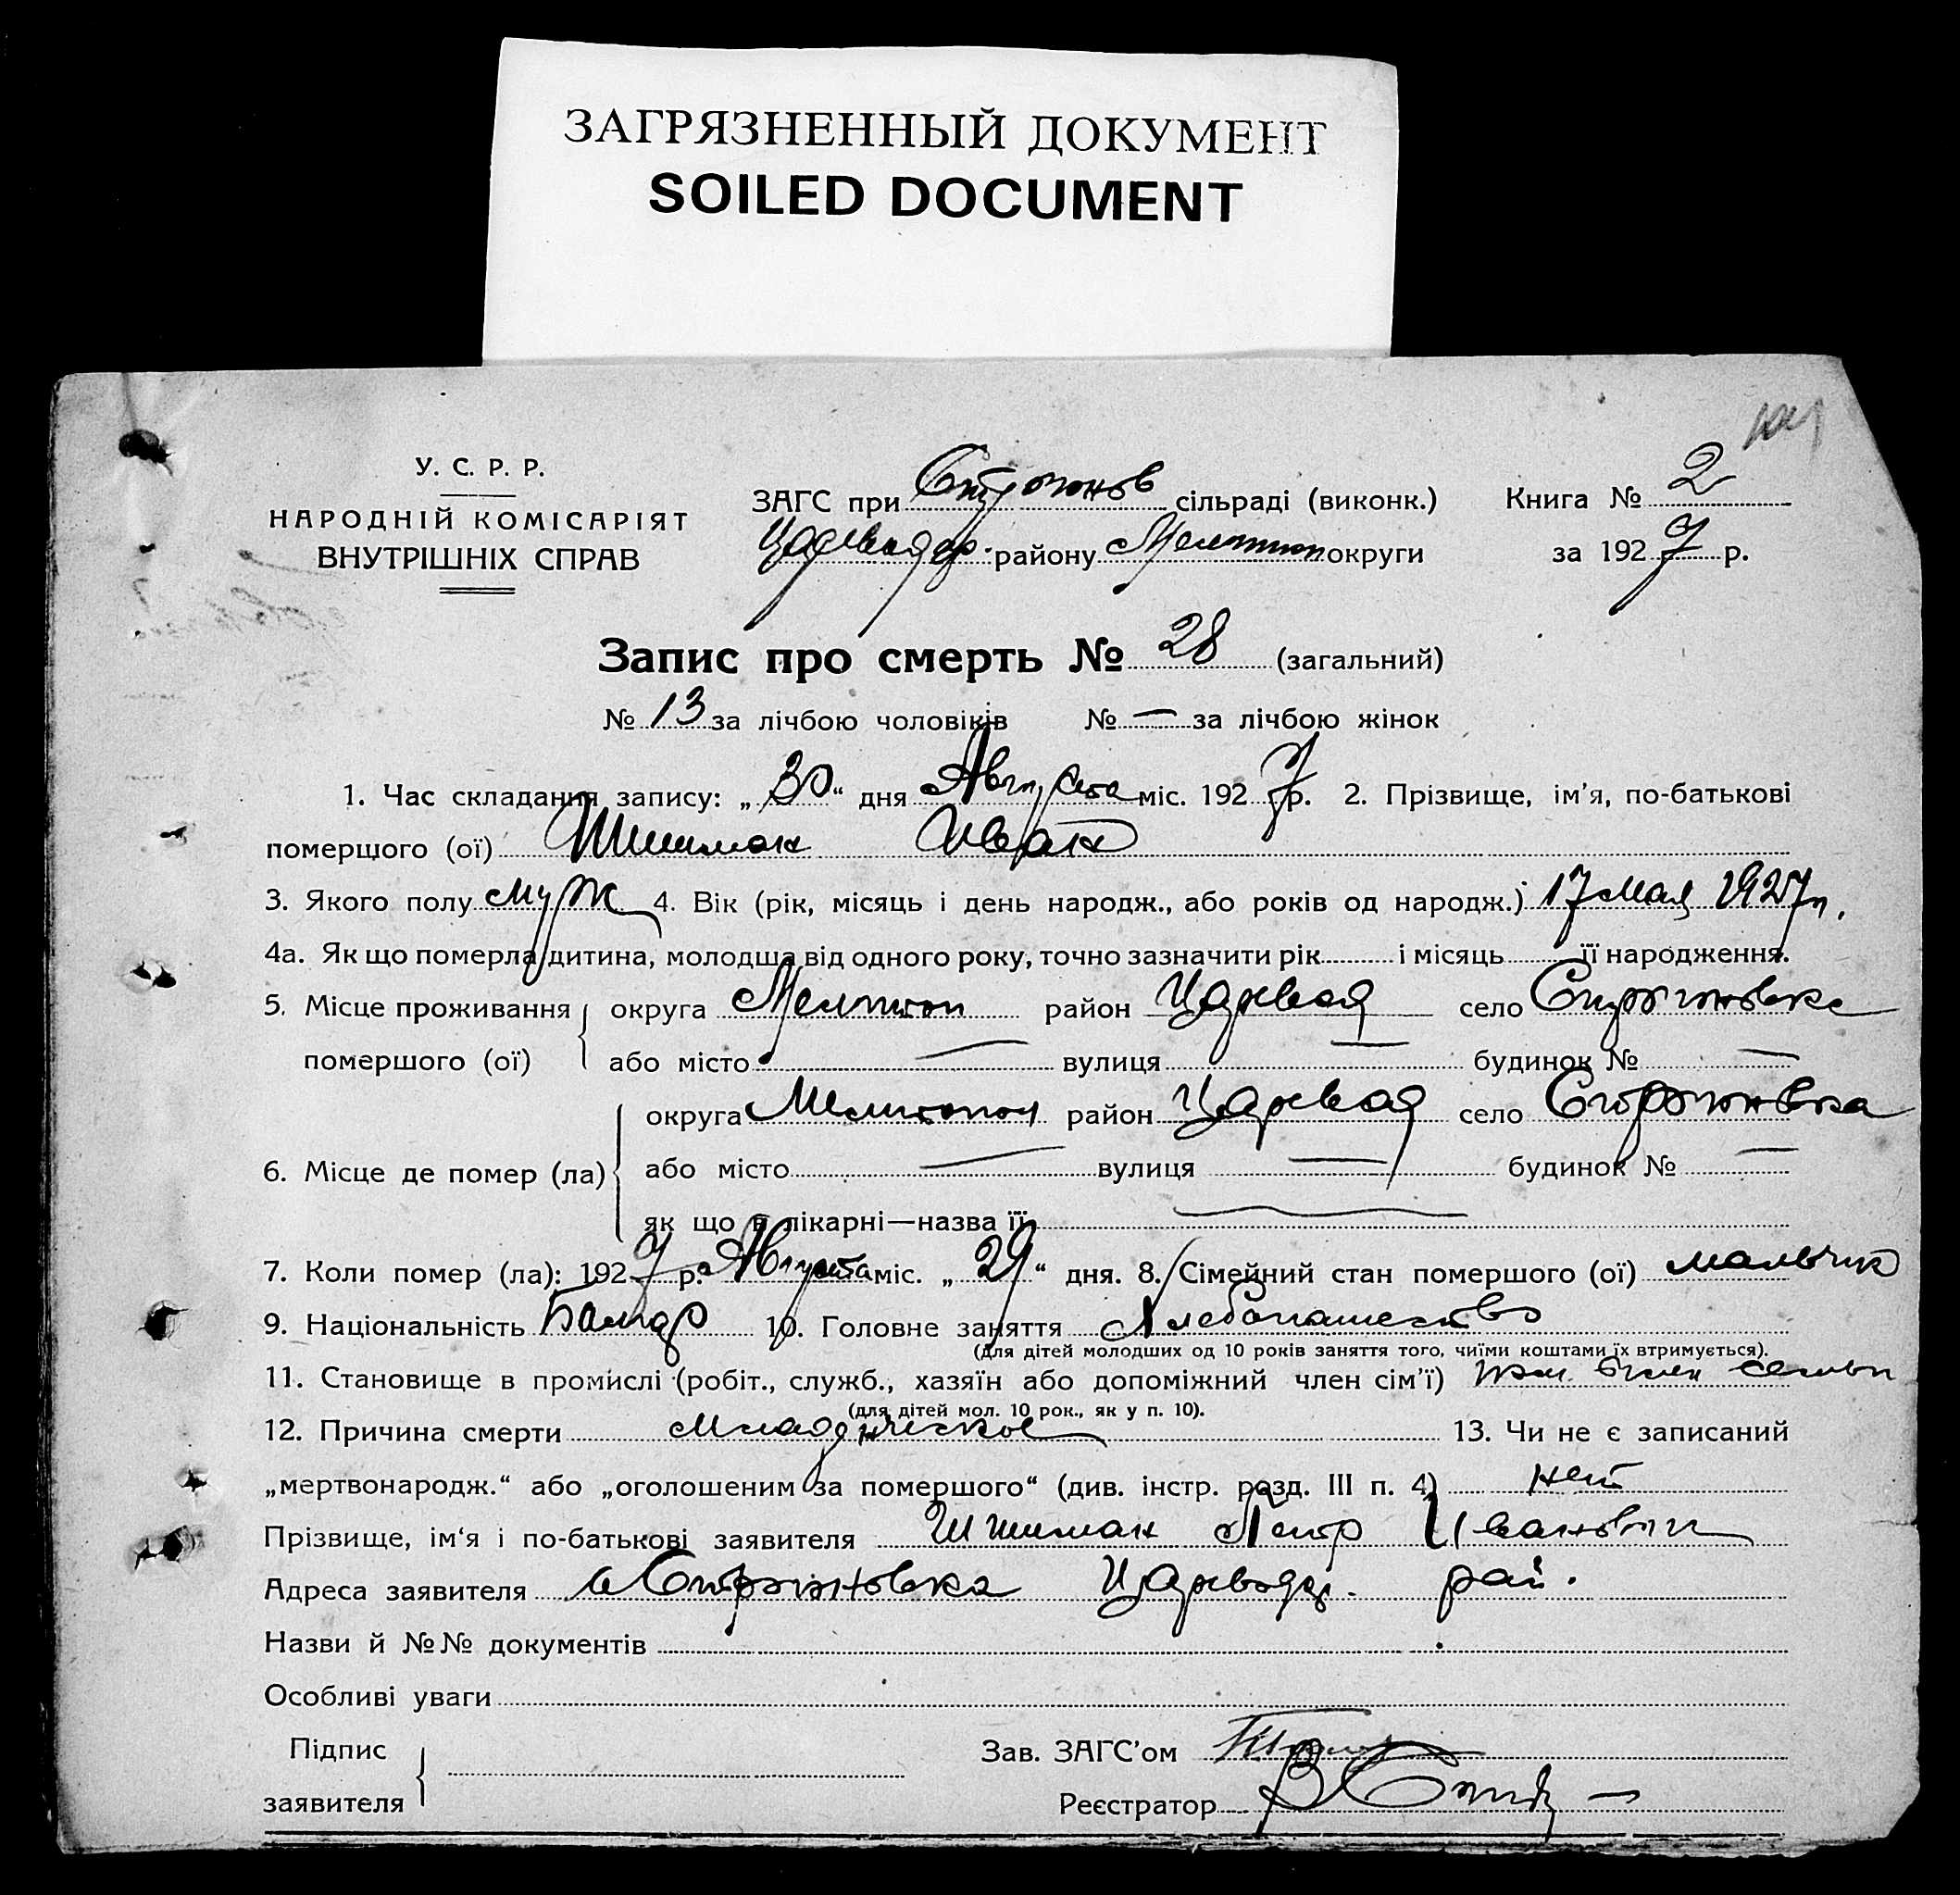 ЗАГРЯЗНЕННЫЙ ДОКУМЕНТ
SOILED DOCUMENT
У. С. Р. Р.
НАРОДНІЙ КОМІСАРІЯТ
ВНУТРІШНІХ СПРАВ
ЗАГС при сільраді (виконк.)
району Мелитоп округи
Книга № 2
за 1927 р.
Запис про смерть № 28 (загальний)
№ 13 за лічбою чоловіків № — за лічбою жінок
1. Час складання запису: „30“ дня Августа міс. 1927 р. 2. Прізвище, ім'я, по-батькові
померщого (ої) Шишман Иван
3. Якого полу муж 4. Вік (рік, місяць і день народж., або років од народж.) 17 мая 1927 г.
4а. Як що померла дитина, молодша від одного року, точно зазначити рік і місяць її народження.
5. Місце проживання округа Мелитоп район Царевод село Строгоновка
помершого (ої) або місто — вулиця — будинок № —
округа Мелитопол район Царевод село Строгоновка
6. Місце де помер (ла) або місто — вулиця — будинок № —
як що в лікарні—назва її —
7. Коли помер (ла): 1927 р. Августа міс. „29“ дня. 8. Сімейний стан помершого (ої) мальчик
9. Національність Болгар 10. Головне заняття Хлебопашество
(для дітей молодших од 10 років заняття того, чиїми коштами їх втримується).
11. Становище в промислі (робіт., служб., хазяїн або допоміжний член сім'ї) член семьи
(для дітей мол. 10 рок., як у п. 10).
12. Причина смерти Младенческое 13. Чи не є записаний
„мертвонародж.“ або „оголошеним за помершого“ (див. інстр. розд. III п. 4) нет
Прізвище, ім‘я і по-батькові заявителя Шишман Петр Иванович
Адреса заявителя с Строгоновка Царевод. рай.
Назви й №№ документів
Особливі уваги
Підпис
заявителя
Зав. ЗАГС'ом
Реєстратор